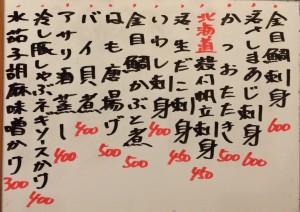 金目鯛刺身 600
活しまあじ刺身 600
かつおたたき 500
北海道殻付帆立刺身 450
活生だこ刺身 450
いわし刺身 400
金目鯛かぶと煮 500
はも唐揚げ 500
バイ貝煮 400
アサリ酒蒸し 400
冷し豚しゃぶネギソースかけ 400
水茄子胡麻味噌かけ 300